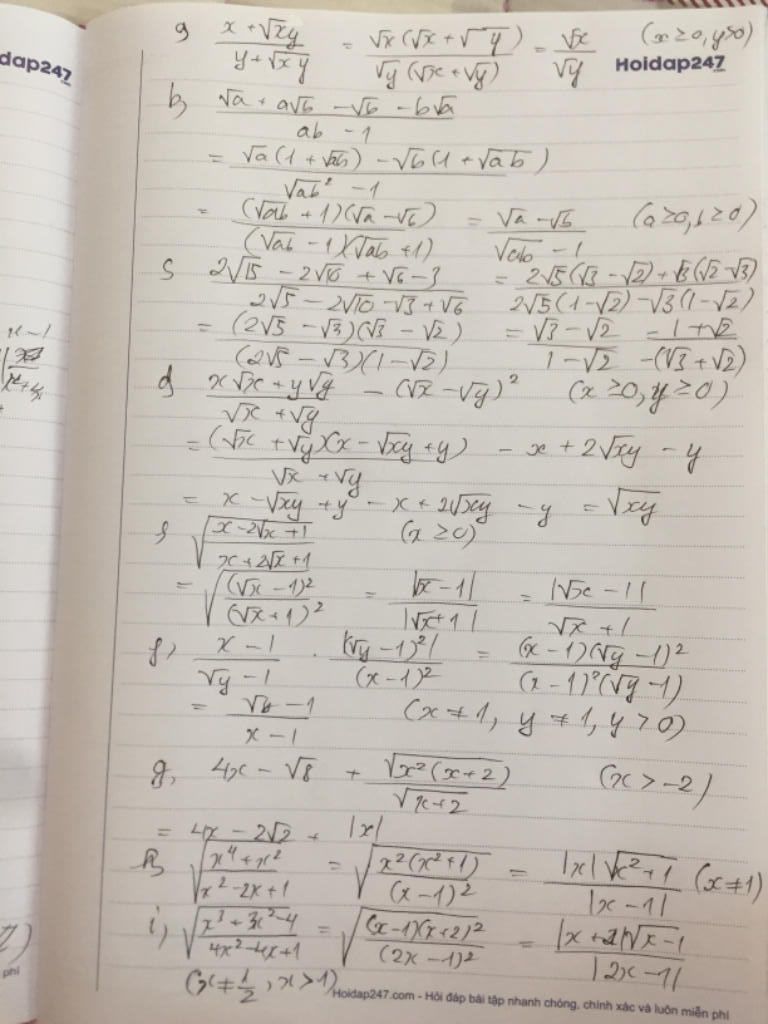 a) \frac{x + \sqrt{xy}}{y + \sqrt{xy}} = \frac{\sqrt{x}(\sqrt{x} + \sqrt{y})}{\sqrt{y}(\sqrt{x} + \sqrt{y})} = \frac{\sqrt{x}}{\sqrt{y}} (x ≥ 0, y > 0)
dap247
Hoidap247
b, \frac{\sqrt{a} + a\sqrt{b} - \sqrt{b} - b\sqrt{a}}{ab - 1}
= \frac{\sqrt{a}(1 + \sqrt{ab}) - \sqrt{b}(1 + \sqrt{ab})}{\sqrt{ab}^2 - 1}
= \frac{(\sqrt{ab} + 1)(\sqrt{a} - \sqrt{b})}{(\sqrt{ab} - 1)(\sqrt{ab} + 1)} = \frac{\sqrt{a} - \sqrt{b}}{\sqrt{ab} - 1} (a ≥ 0, b ≥ 0)
c \frac{2\sqrt{15} - 2\sqrt{10} + \sqrt{6} - 3}{2\sqrt{5} - 2\sqrt{10} - \sqrt{3} + \sqrt{6}} = \frac{2\sqrt{5}(\sqrt{3} - \sqrt{2}) + \sqrt{3}(\sqrt{2} - \sqrt{3})}{2\sqrt{5}(1 - \sqrt{2}) - \sqrt{3}(1 - \sqrt{2})}
= \frac{(2\sqrt{5} - \sqrt{3})(\sqrt{3} - \sqrt{2})}{(2\sqrt{5} - \sqrt{3})(1 - \sqrt{2})} = \frac{\sqrt{3} - \sqrt{2}}{1 - \sqrt{2}} = \frac{1 + \sqrt{2}}{-(\sqrt{3} + \sqrt{2})}
x - 1
d \frac{x\sqrt{x} + y\sqrt{y}}{\sqrt{x} + \sqrt{y}} - (\sqrt{x} - \sqrt{y})^2 (x ≥ 0, y ≥ 0)
= \frac{(\sqrt{x} + \sqrt{y})(x - \sqrt{xy} + y)}{\sqrt{x} + \sqrt{y}} - x + 2\sqrt{xy} - y
= x - \sqrt{xy} + y - x + 2\sqrt{xy} - y = \sqrt{xy}
e \sqrt{\frac{x - 2\sqrt{x} + 1}{x + 2\sqrt{x} + 1}} (x ≥ 0)
= \sqrt{\frac{(\sqrt{x} - 1)^2}{(\sqrt{x} + 1)^2}} = \frac{|\sqrt{x} - 1|}{|\sqrt{x} + 1|} = \frac{|\sqrt{x} - 1|}{\sqrt{x} + 1}
f, \frac{x - 1}{\sqrt{y} - 1} . \frac{|(\sqrt{y} - 1)^2|}{(x - 1)^2} = \frac{(x - 1)(\sqrt{y} - 1)^2}{(x - 1)^2(\sqrt{y} - 1)}
= \frac{\sqrt{y} - 1}{x - 1} (x ≠ 1, y ≠ 1, y > 0)
g, 4x - \sqrt{8} + \frac{\sqrt{x^2(x + 2)}}{\sqrt{x + 2}} (x > -2)
= 4x - 2\sqrt{2} + |x|
h \sqrt{\frac{x^4 + x^2}{x^2 - 2x + 1}} = \sqrt{\frac{x^2(x^2 + 1)}{(x - 1)^2}} = \frac{|x|\sqrt{x^2 + 1}}{|x - 1|} (x ≠ 1)
i, \sqrt{\frac{x^3 + 3x^2 - 4}{4x^2 - 4x + 1}} = \sqrt{\frac{(x - 1)(x + 2)^2}{(2x - 1)^2}} = \frac{|x + 2|\sqrt{x - 1}}{|2x - 1|}
(x ≠ \frac{1}{2}, x > 1)
phí
Hoidap247.com - Hỏi đáp bài tập nhanh chóng, chính xác và luôn miễn phí